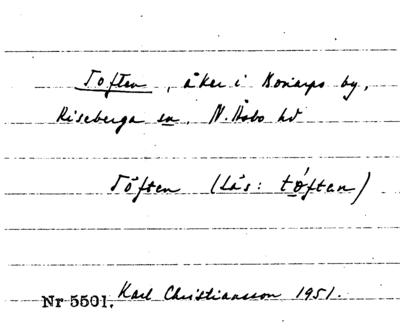 Toften, åker i Bonarps by,
Riseberga sn, N. Åsbo hd
Töften (Läs: tǿften)
Nr 5501. Karl Christiansson 1951.